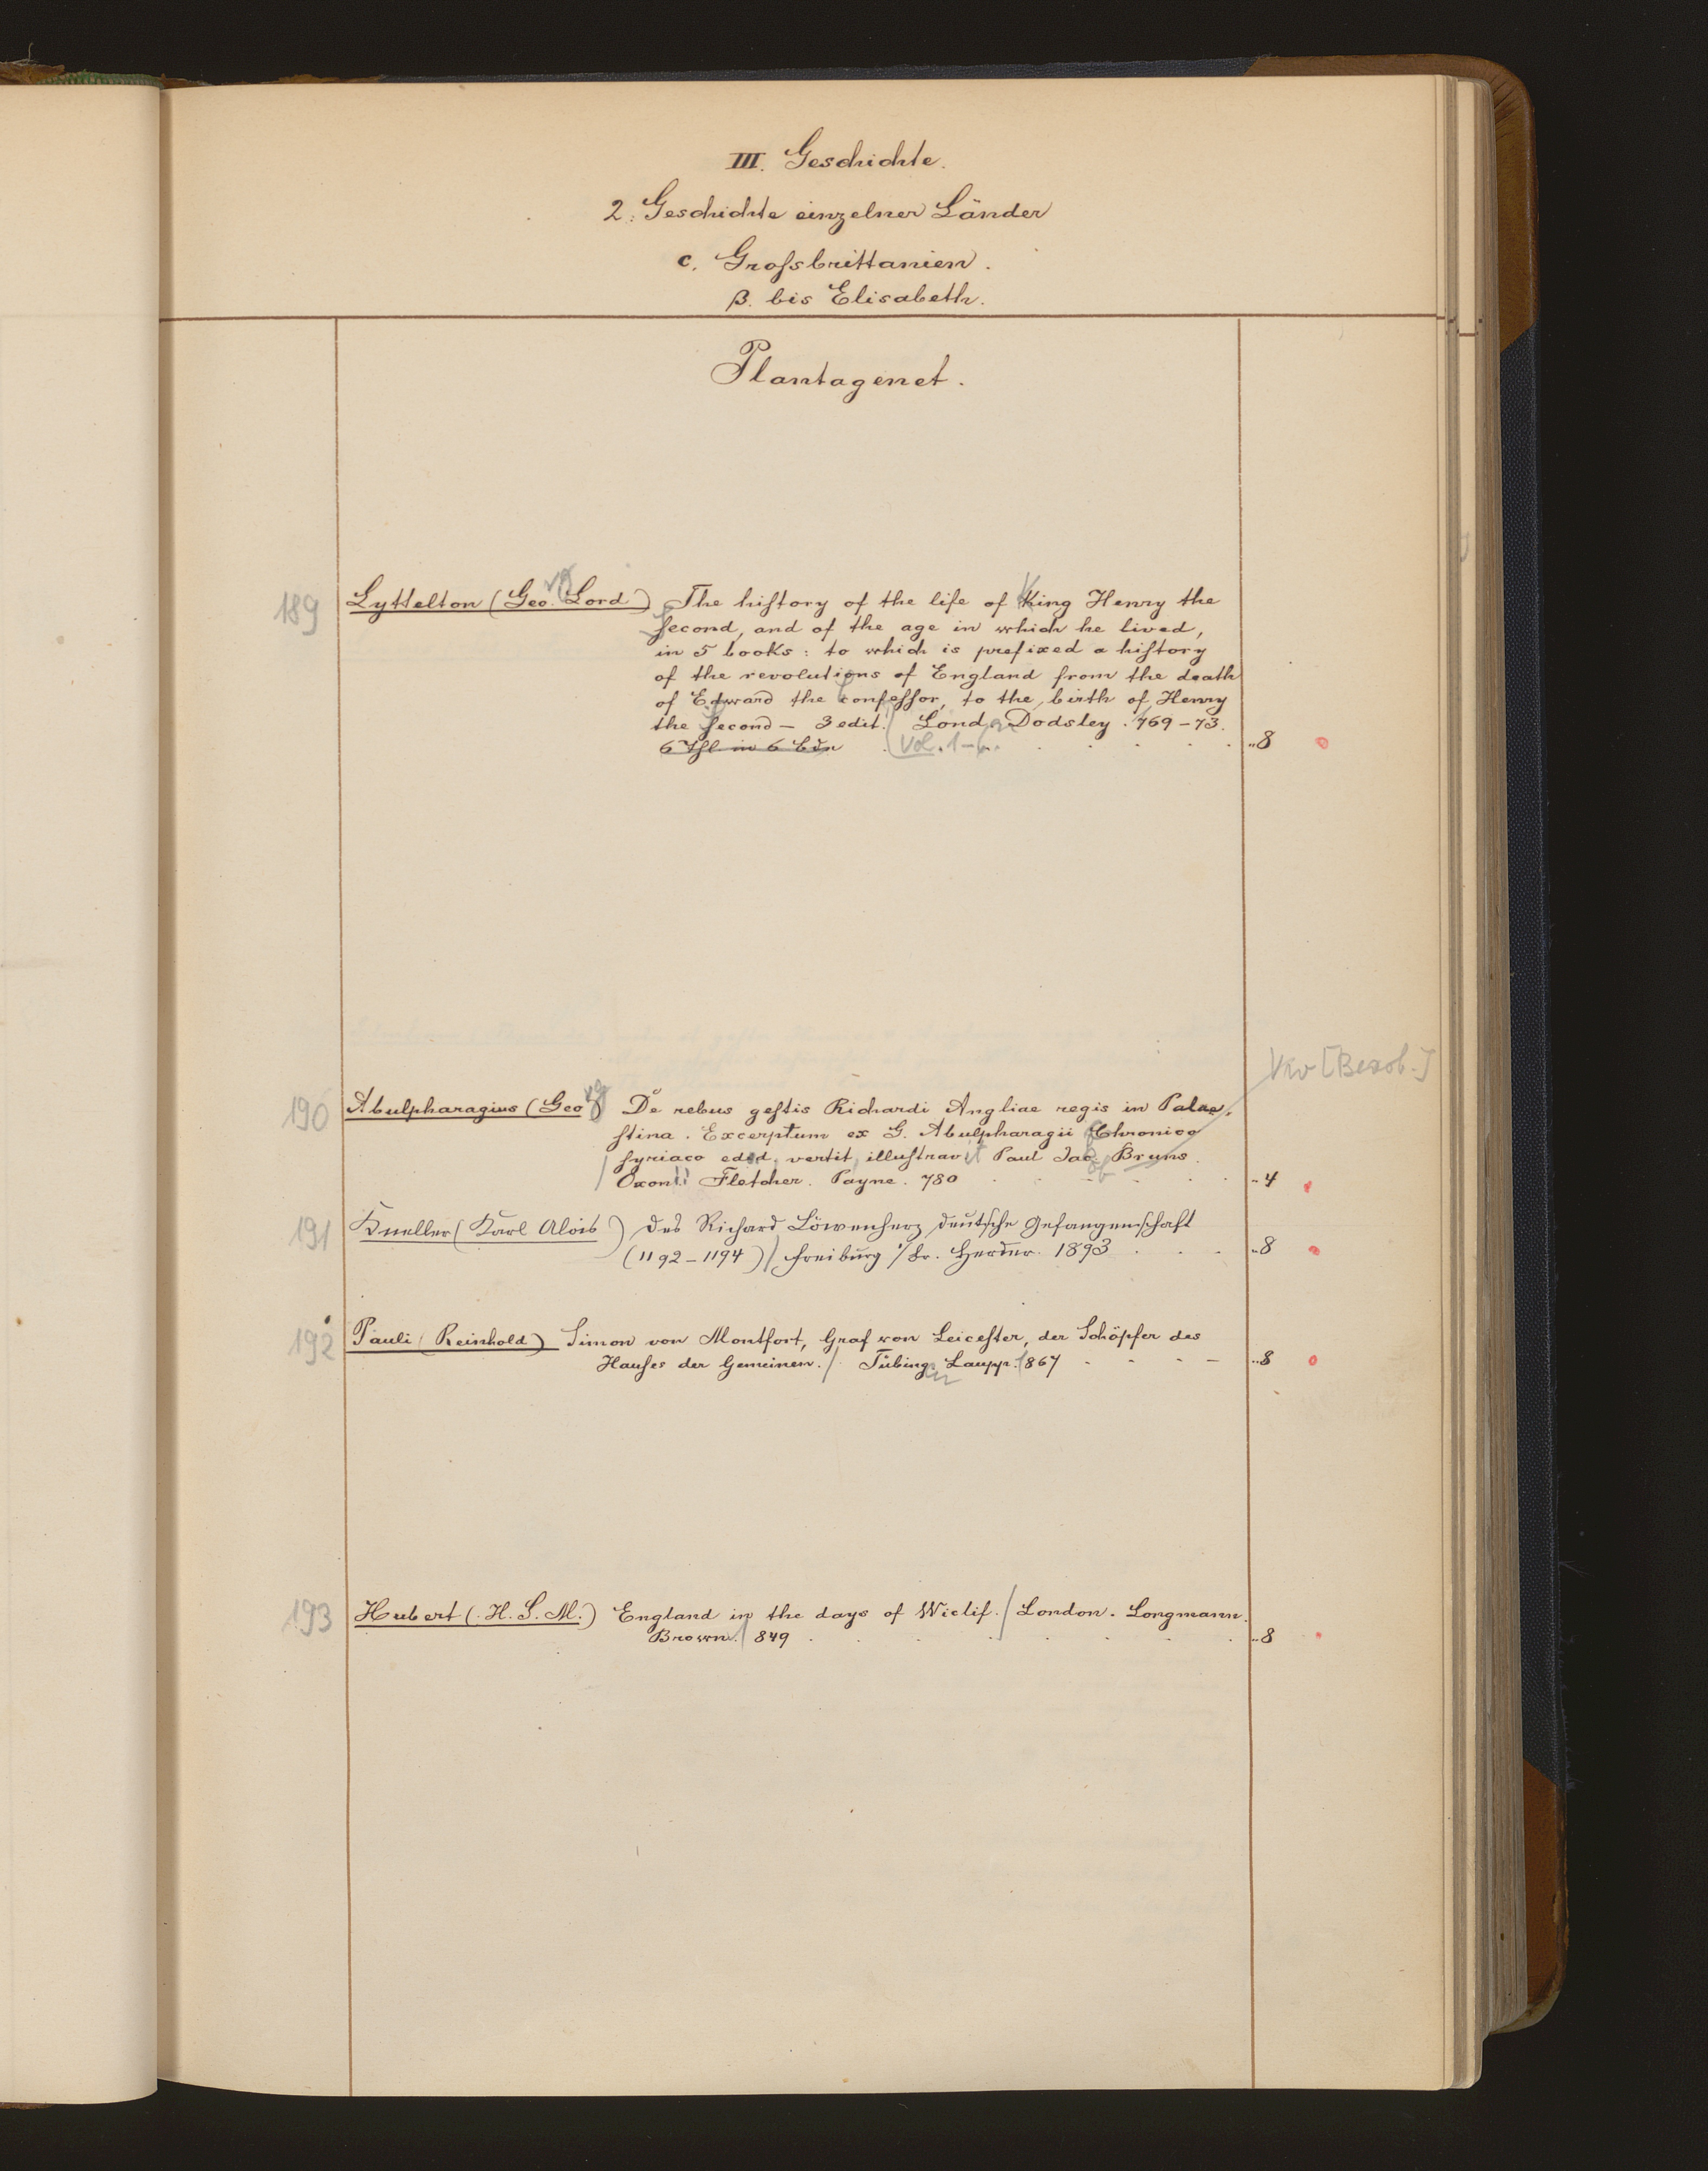 III. Geschichte.
2. Geschichte einzelner Länder
c. Grofsbrittanien.
β. bis Elisabeth.
Plantagenet.
189 Lyttelton (Geo. Lord) The hiſtory of the life of King Henry the
ſecond, and of the age in which he lived,
in 5 books: to which is prefixed a hiſtory
of the revolutions of England from the death
of Edward the confeſſor, to the birth of Henry
the ſecond – 3 edit. / Lond. Dodsley. 769–73.
6 Thl. in 6 Bdn Vol. 1–6. ..8
[Bezob.]
190 Abulpharagius (Geo De rebus geſtis Richardi Angliae regis in Palae,
ſtina. Excerptum ex G. Abulpharagii Chronico
ſyriaco edid. vertit, illuſtravit Paul Jac. Bruns.
/ Oxonii Fletcher. Payne. 780 ..4
191 Kneller (Karl Alois) Des Richard Löwenherz deutsche Gefangenschaft
(1192–1194) / Freiburg i/Br. Herder. 1893 ..8
192 Pauli (Reinhold) Simon von Montfort, Graf von Leiceſter, der Schöpfer des
Hauſes der Gemeinen. / Tübing. Laupp. 1867 ..8
193 Hubert (H. S. M.) England in the days of Wiclif. / London. Longmann.
Brown. 849 ..8